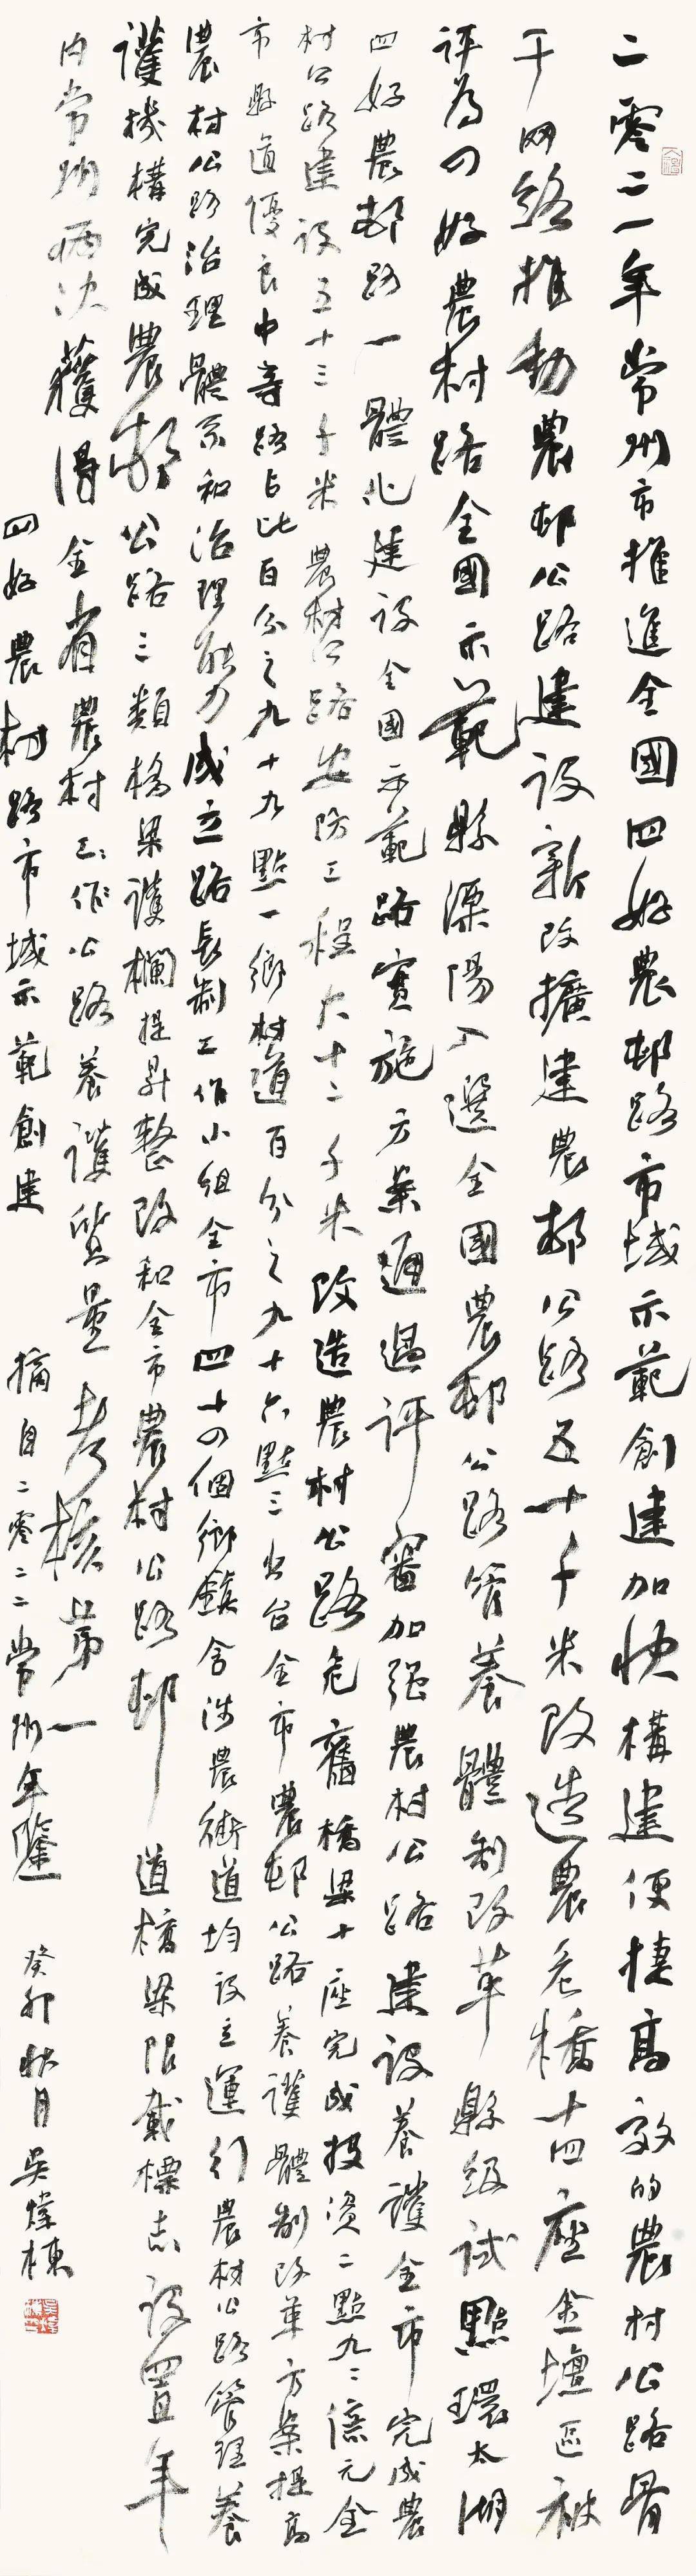 二零二一年常州市推進全國四好農邨路市域示範創建加快構建便捷高效的農村公路骨
干网絡推動農邨公路建设新改擴建農邨公路五十千米改造農危橋十四座金壇區被
评為四好農村路全國示範縣溧陽入選全國農邨公路管養體制改革縣級试點環太湖
四好農邨路一體化建设全國示範路實施方案通過评審加强農村公路建设養護全市完成農
村公路建设五十三千米農村公路安防工程六十二千米改造農村公路危舊橋梁十座完成投資二點九二億元全
市縣道優良中等路占比百分之九十九點一鄉村道百分之九十六點三出台全市農邨公路養護體制改革方案提高
農村公路治理體系和治理能力成立路長制工作小组全市四十四個鄉鎮含涉農街道均设立運行農村公路管理養
護機構完成農邨公路三類橋梁護欄提昇整改和全市農村公路邨道橋梁限載標志设置年
内常州兩次獲得全省農村工作公路養護質量考核第一
四好農村路市域示範創建 摘自二零二二常州年鑒 癸卯秋月吳煒棟